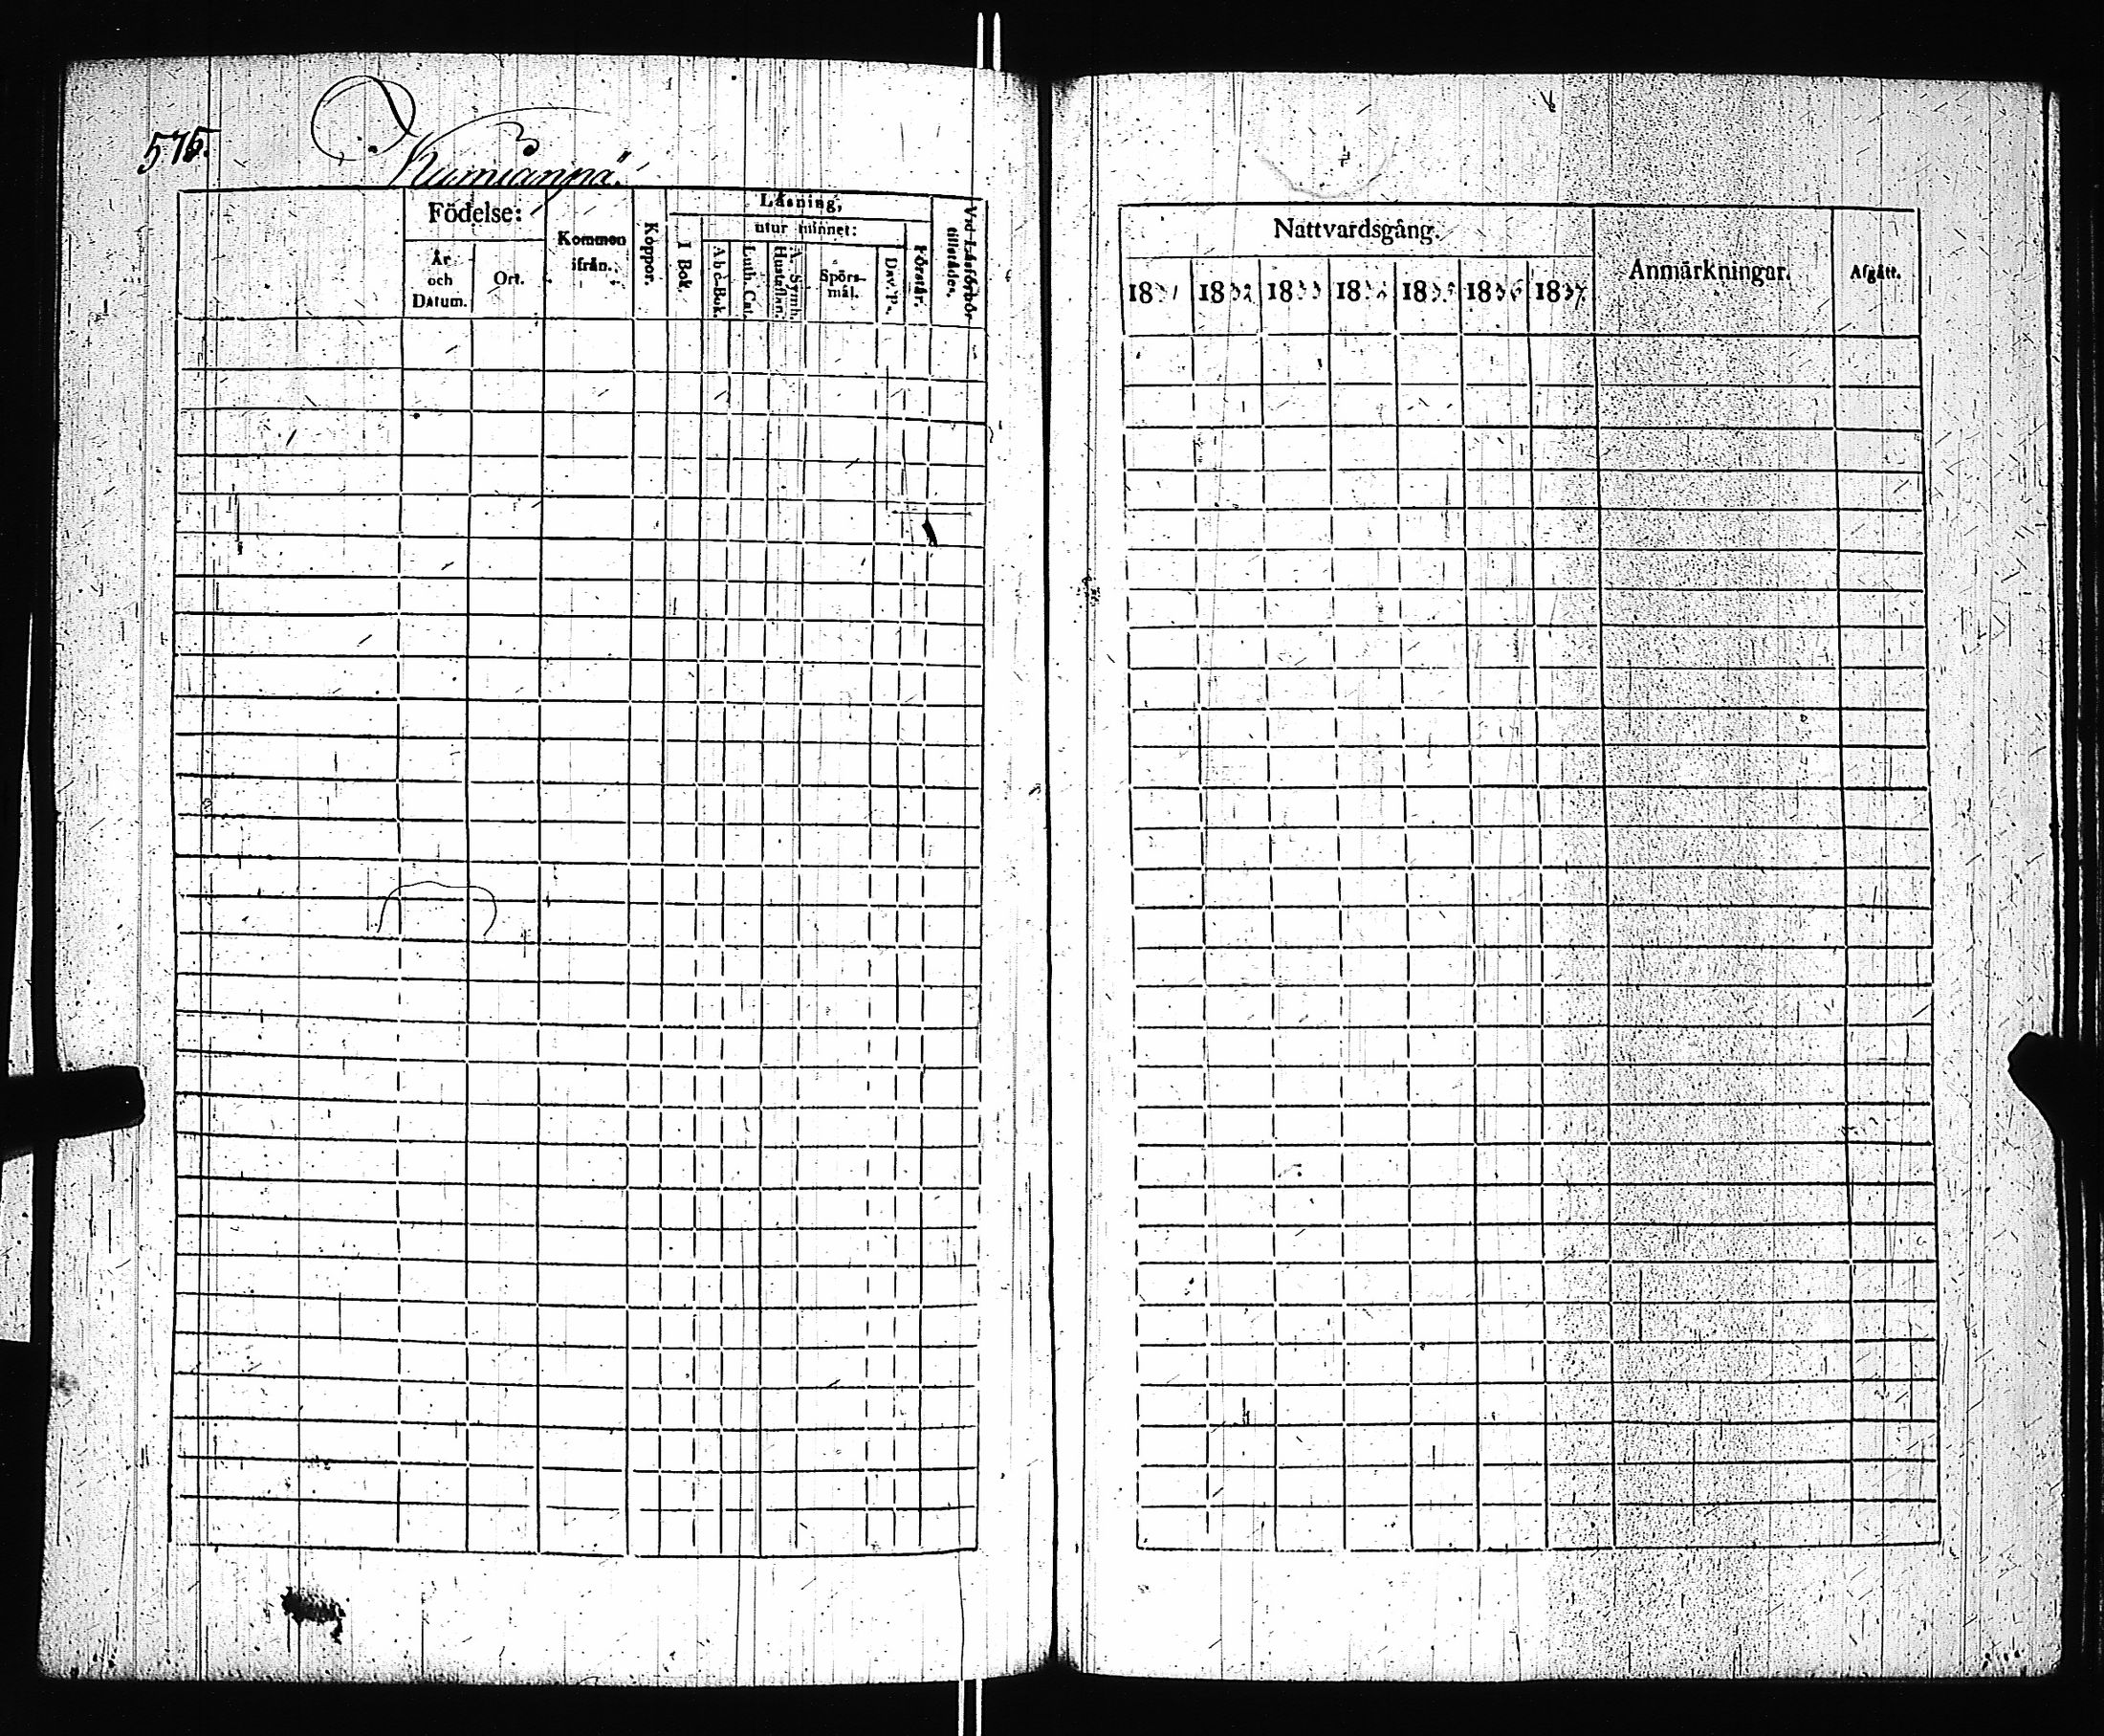 575.
Kumianpä.
Födelse:
År och Datum.
Ort.
Kommen ifrån.
Koppor.
Läsning,
I Bok.
utur minnet:
Abc-Bok.
Luth. Cat.
A. Symb. Hustaflan.
Spörsmål.
Dav. Ps.
Förstår.
Vid Läsförhör tillstädes.
Nattvardsgång.
1831 1832 1833 1834 1835 1836 1837
Anmärkningar.
Afgått.